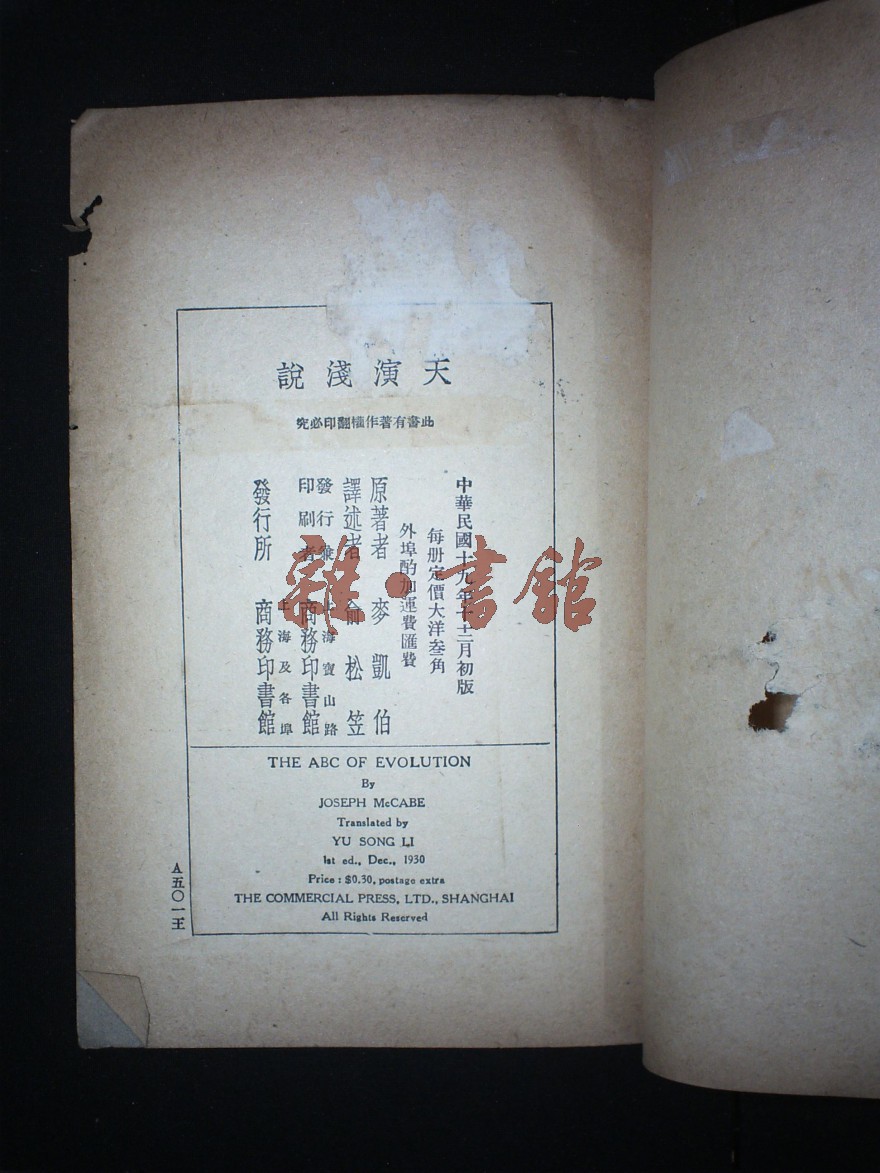 天演淺說
此書有著作權翻印必究
中華民國十九年十二月初版
每册定價大洋叁角
外埠酌加運費匯費
原著者 麥凱伯
譯述者 俞松笠
發行兼印刷者 上海寶山路 商務印書館
發行所 上海及各埠 商務印書館
雜·書館
THE ABC OF EVOLUTION
By
JOSEPH McCABE
Translated by
YU SONG LI
1st ed., Dec., 1930
Price : $0.30, postage extra
THE COMMERCIAL PRESS, LTD., SHANGHAI
All Rights Reserved
A五〇一王